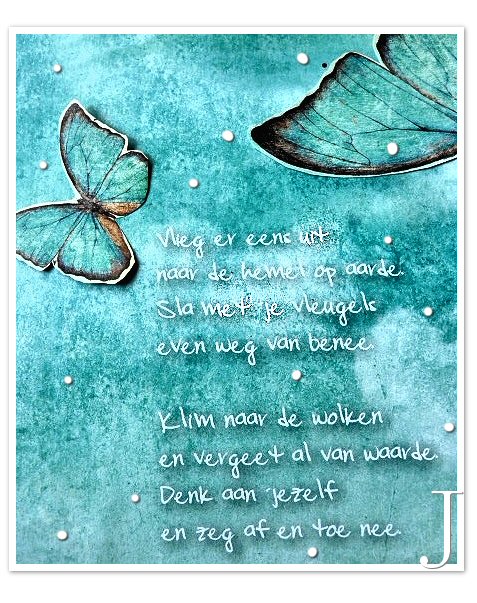 Vlieg er eens uit
naar de hemel op aarde.
Sla met je vleugels
even weg van benee.
Klim naar de wolken
en vergeet al van waarde.
Denk aan jezelf
en zeg af en toe nee.
J